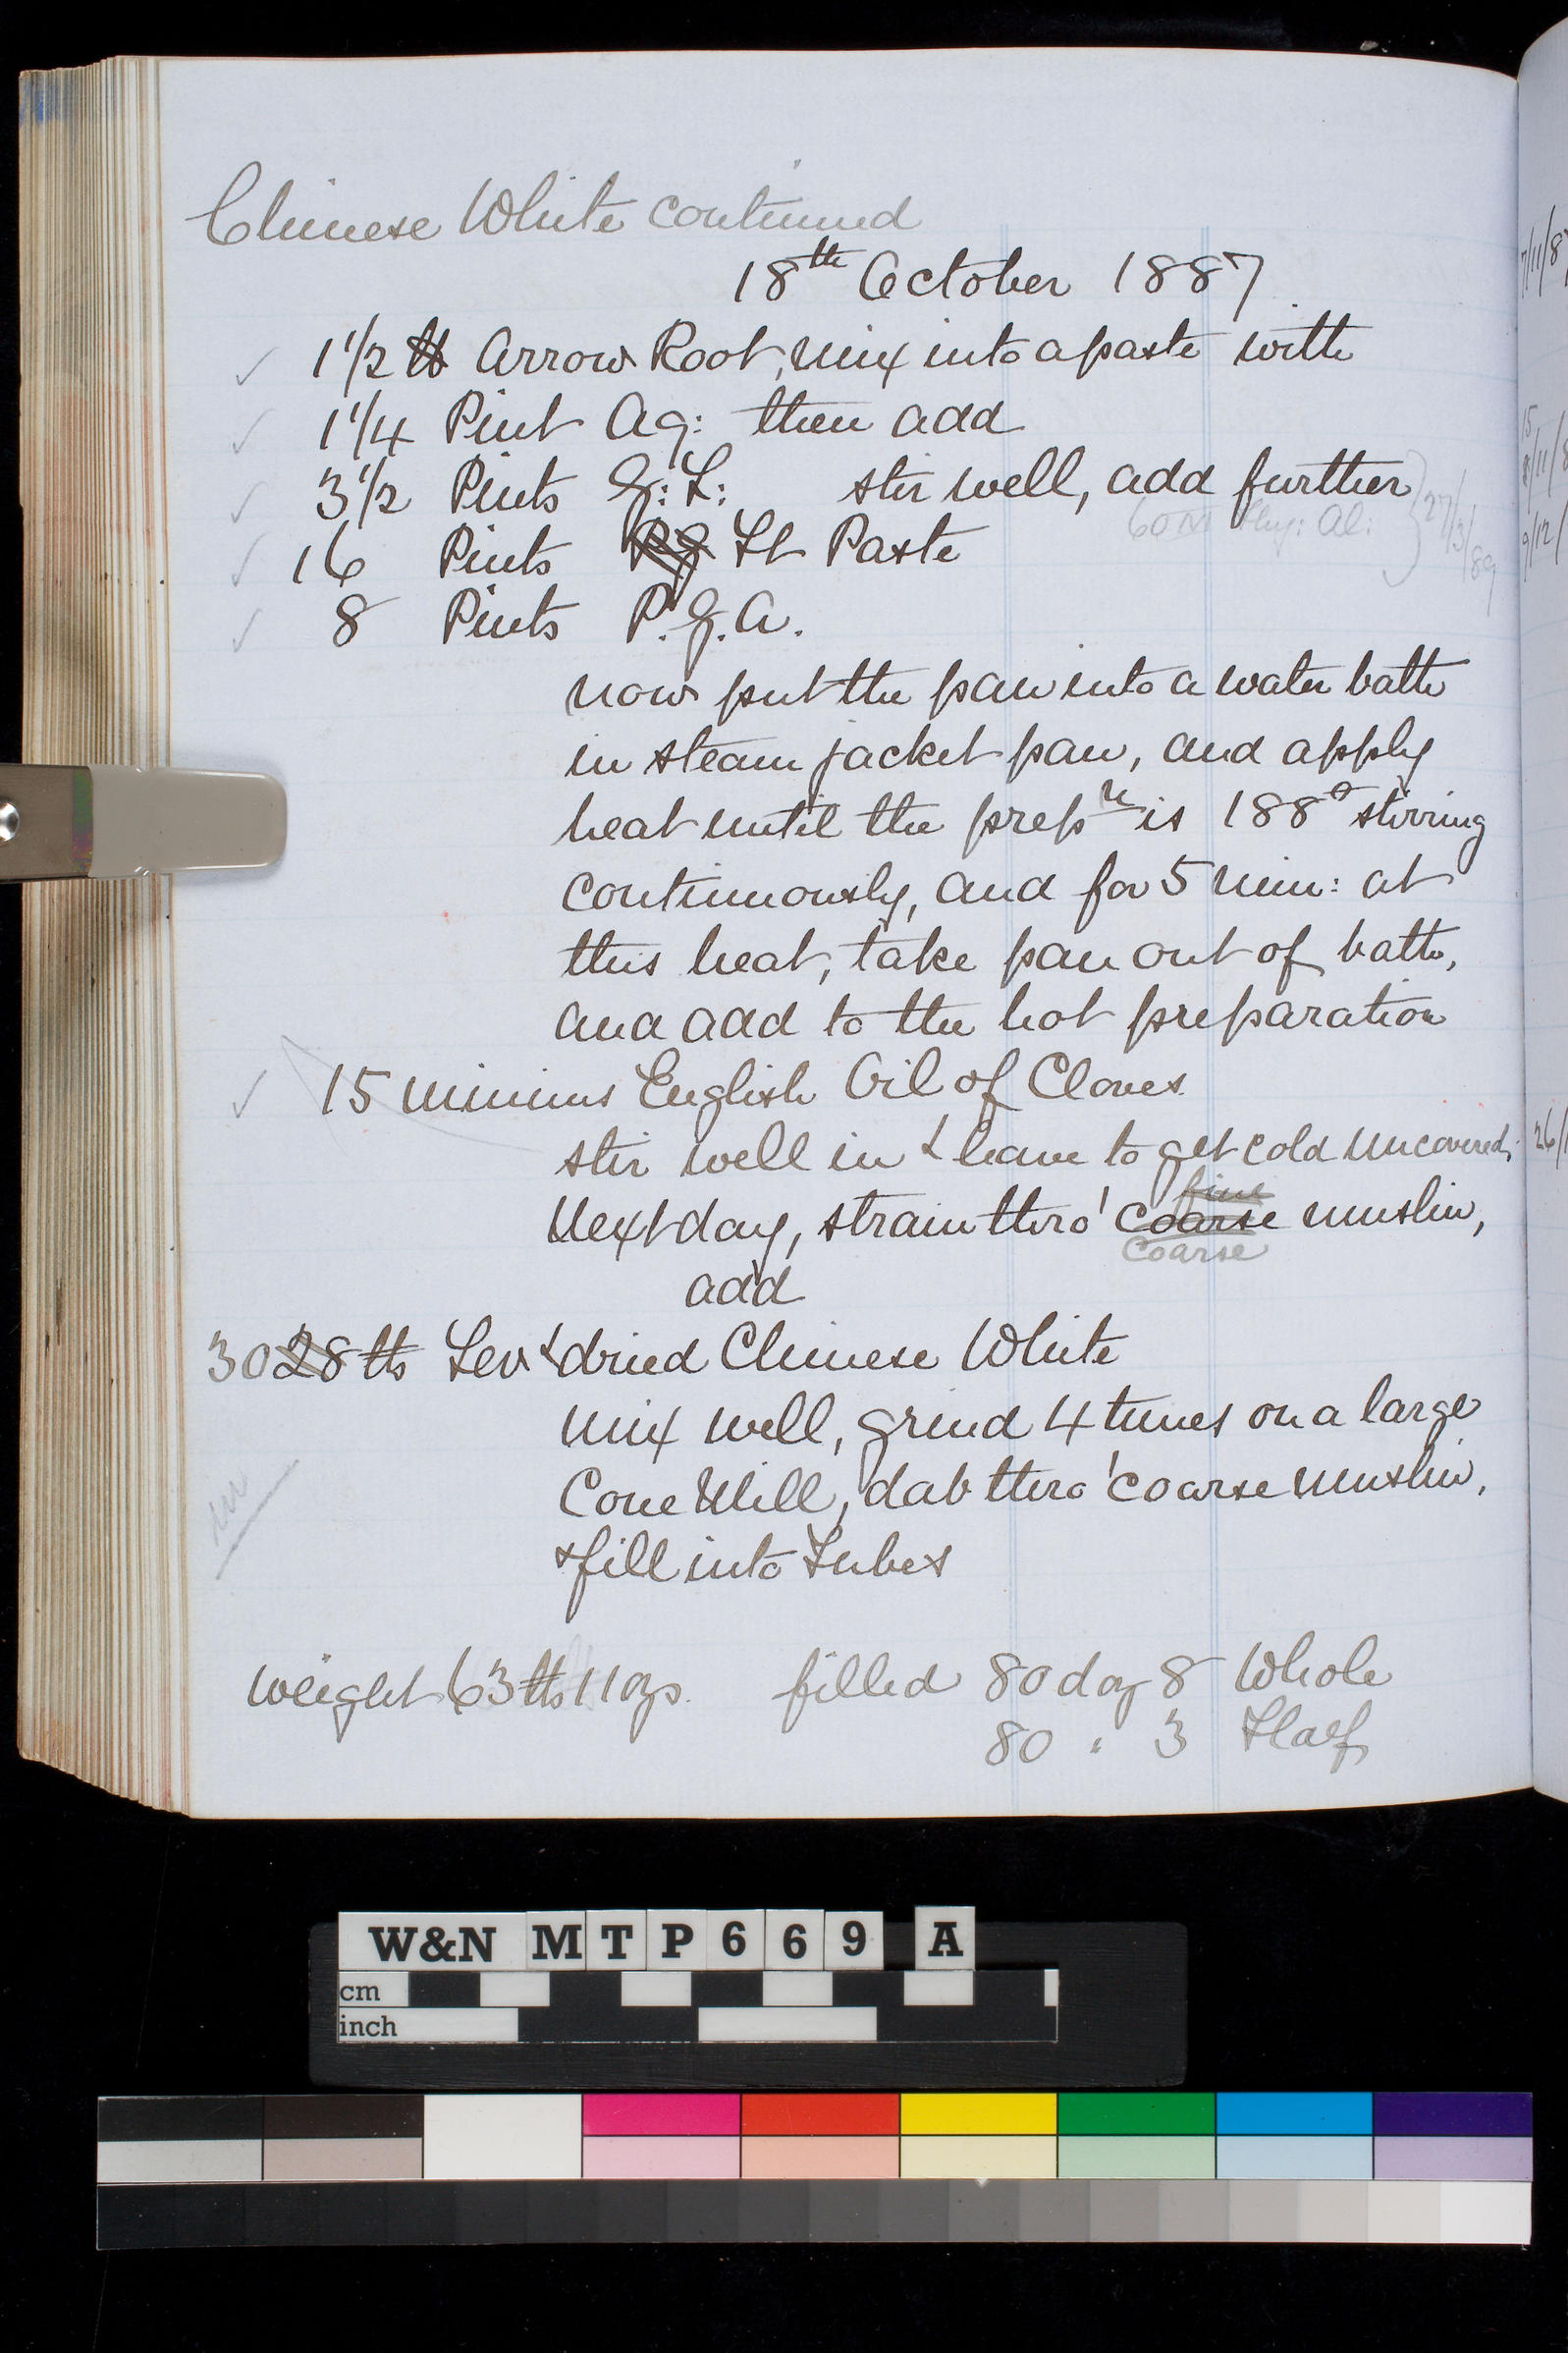 Chinese White continued
18th October 1887
1 1/2 lb Arrow Root, mix into a paste with
1 1/4 Pint Aq: then add
3 1/2 Pints G: L: stir well, add further
27/3/89
16 Pints Lt Paste
8 Pints P.G.A.
now put the pan into a water bath
in steam jacket pan, and apply
heat until the prepn is 188° stirring
continuously, and for 5 min: at
this heat, take pan out of bath,
and add to the hot preparation
15 minims English Oil of Cloves
stir well in & leave to get cold uncovered,
fine
Next day, strain thro' coarse muslin,
coarse
add
30 28 lbs Lev & dried Chinese White
mix well, grind 4 times on a large
Cone Mill, dab thro' coarse muslin,
& fill into Tubes
weight 63 lbs 11 ozs. filled 80 doz 8 Whole
80 " 3 Half
W&N MTP669 A
cm
inch